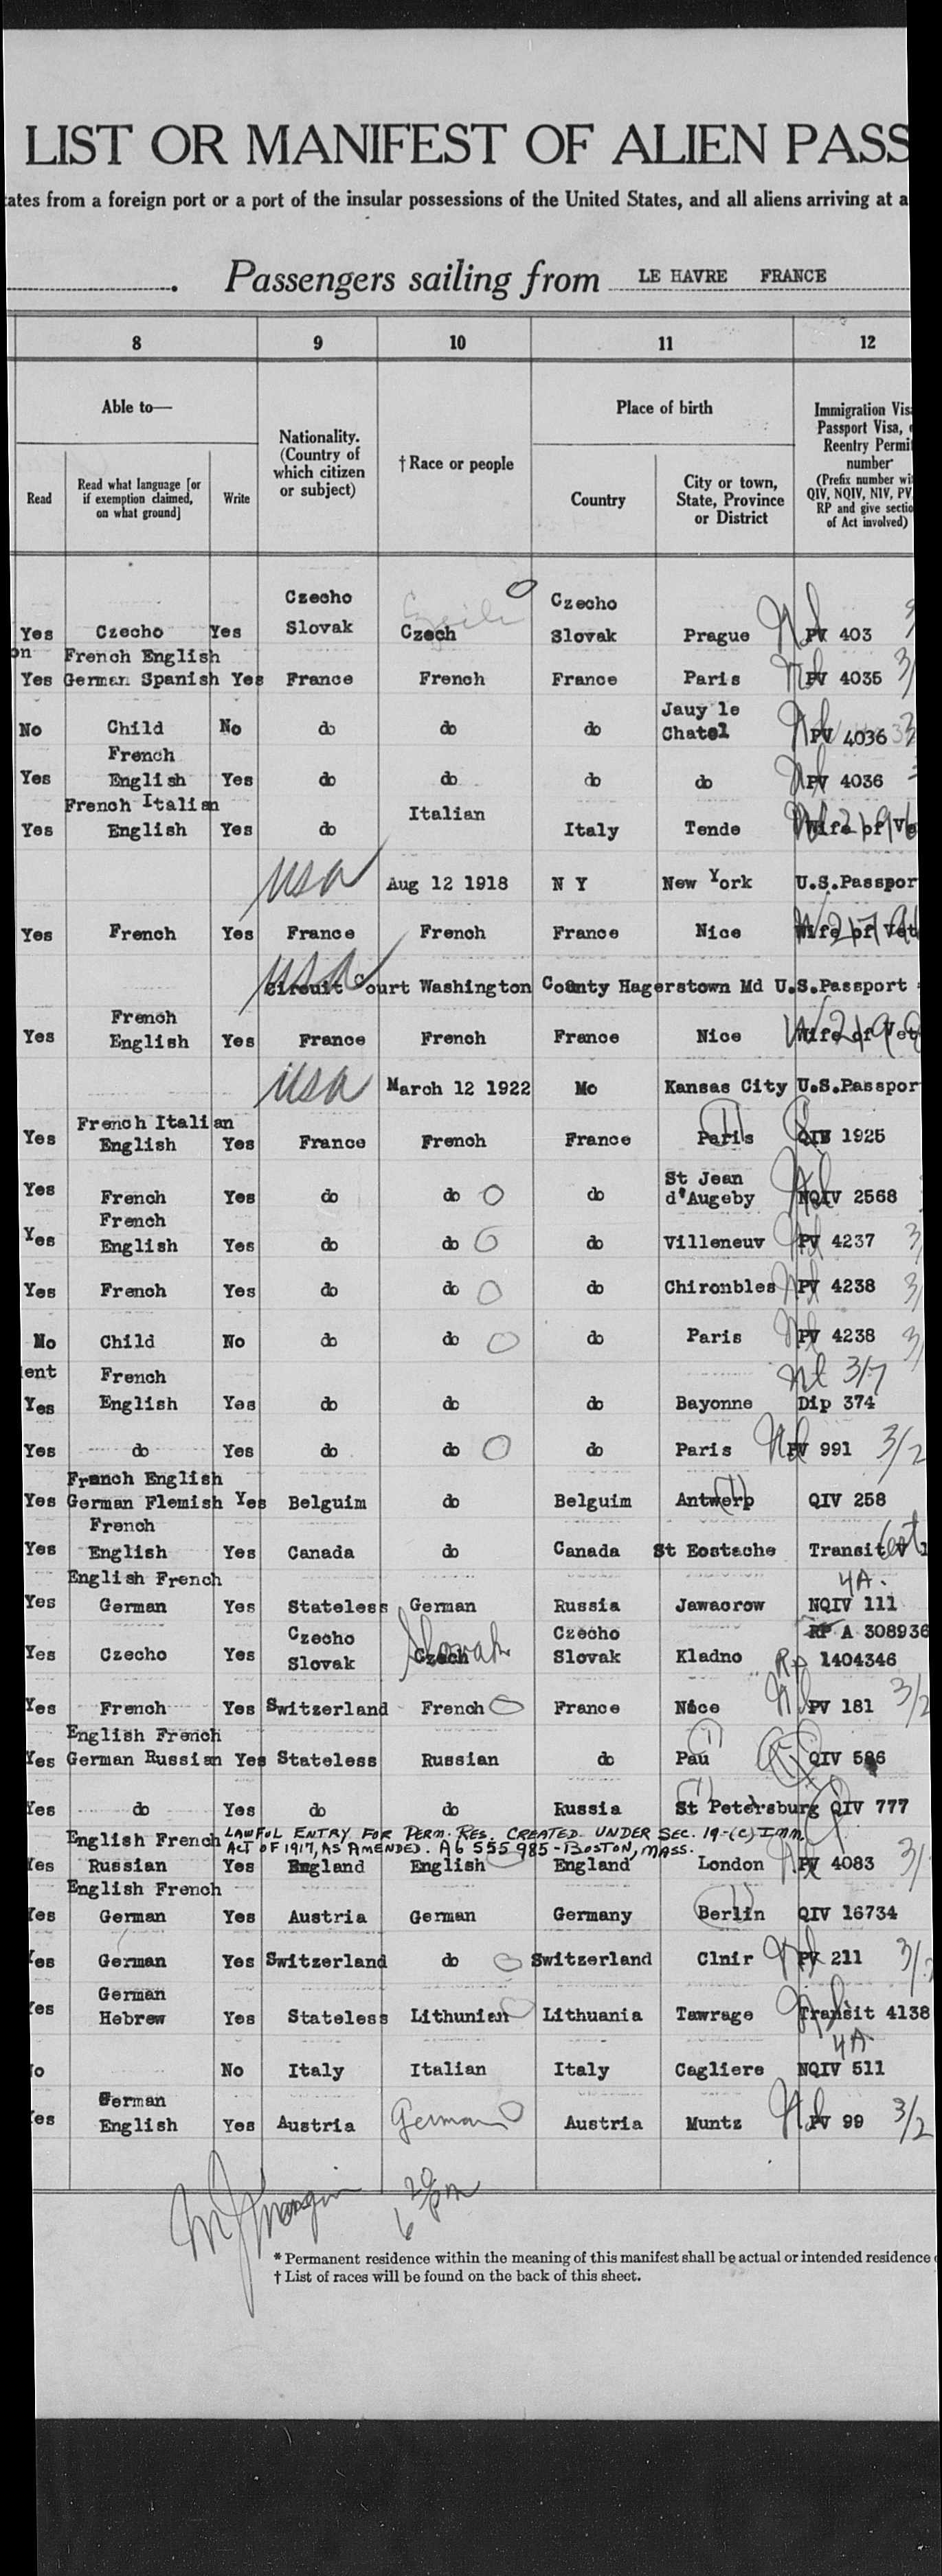 LIST OR MANIFEST OF ALIEN PASS
ates from a foreign port or a port of the insular possessions of the United States, and all aliens arriving at a
Passengers sailing from LE HAVRE FRANCE
8 9 10 11 12
Able to—
Nationality. (Country of which citizen or subject)
† Race or people
Place of birth
Immigration Vis
Passport Visa,
Reentry Permi
number
(Prefix number wi
QIV, NQIV, NIV, PV,
RP and give sectio
of Act involved)
Read
Read what language [or if exemption claimed, on what ground]
Write
Country
City or town, State, Province or District
Czecho Czecho
Yes Czecho Yes Slovak Czech Slovak Prague PV 403
on French English
Yes German Spanish Yes France French France Paris PV 4035 3/
Jauy le
No Child No do do do Chatel PV 4036
French
Yes English Yes do do do do PV 4036
French Italian Italian
Yes English Yes do Italy Tende Wife of Ve
USA Aug 12 1918 N Y New York U.S.Passpor
Yes French Yes France French France Nice Wife of Vet
USA Circuit Court Washington County Hagerstown Md U.S.Passport
French
Yes English Yes France French France Nice Wife of Vet
USA March 12 1922 Mo Kansas City U.S.Passpor
French Italian
Yes English Yes France French France Paris QIV 1925
St Jean
Yes French Yes do do do d'Augeby NQIV 2568
French
Yes English Yes do do do Villeneuv PV 4237 3/
Yes French Yes do do do Chironbles PV 4238 3/
No Child No do do do Paris PV 4238 3/
ent French 3/7
Yes English Yes do do do Bayonne Dip 374
Yes do Yes do do do Paris PV 991 3/2
French English
Yes German Flemish Yes Belguim do Belguim Antwerp QIV 258
French
Yes English Yes Canada do Canada St Eostache Transit V
English French 4A.
Yes German Yes Stateless German Russia Jawacrow NQIV 111
Czecho Slovak Czecho RP A 308936
Yes Czecho Yes Slovak Czech Slovak Kladno Rp 1404346
Yes French Yes Switzerland French France Nice PV 181 3/2
English French
Yes German Russian Yes Stateless Russian do Pau QIV 586
Yes do Yes do do Russia St Petersburg QIV 777
LAWFUL ENTRY FOR PERM. RES. CREATED UNDER SEC. 19-(C) IMM.
English French ACT OF 1917, AS AMENDED. A6 555 985 - BOSTON, MASS.
Yes Russian Yes England English England London PV 4083 3/
English French
Yes German Yes Austria German Germany Berlin QIV 16734
Yes German Yes Switzerland do Switzerland Clnir PV 211 3/
German
Yes Hebrew Yes Stateless Lithunien Lithuania Tawrage Transit 4138
4A
No No Italy Italian Italy Cagliere NQIV 511
German
Yes English Yes Austria German Austria Muntz PV 99 3/2
6 20 PM
* Permanent residence within the meaning of this manifest shall be actual or intended residence
† List of races will be found on the back of this sheet.